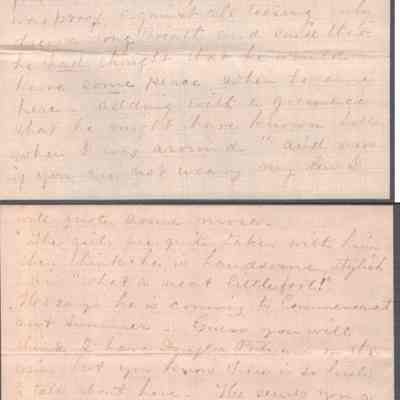 was proof against all teasing, only
drew a long breath and said that
he had thought that he would
have some peace when he came
here - adding with a grimace
that he might have known better
when I was around." and now
if you are not weary my dear I
will quote some more.
"The girls are quite taken with him
they think he is handsome, stylish
and "what a neat little foot!"
He says he is coming to Commencement
next summer. Guess you will
think I have on the
but you know there is so little
to talk about here. The